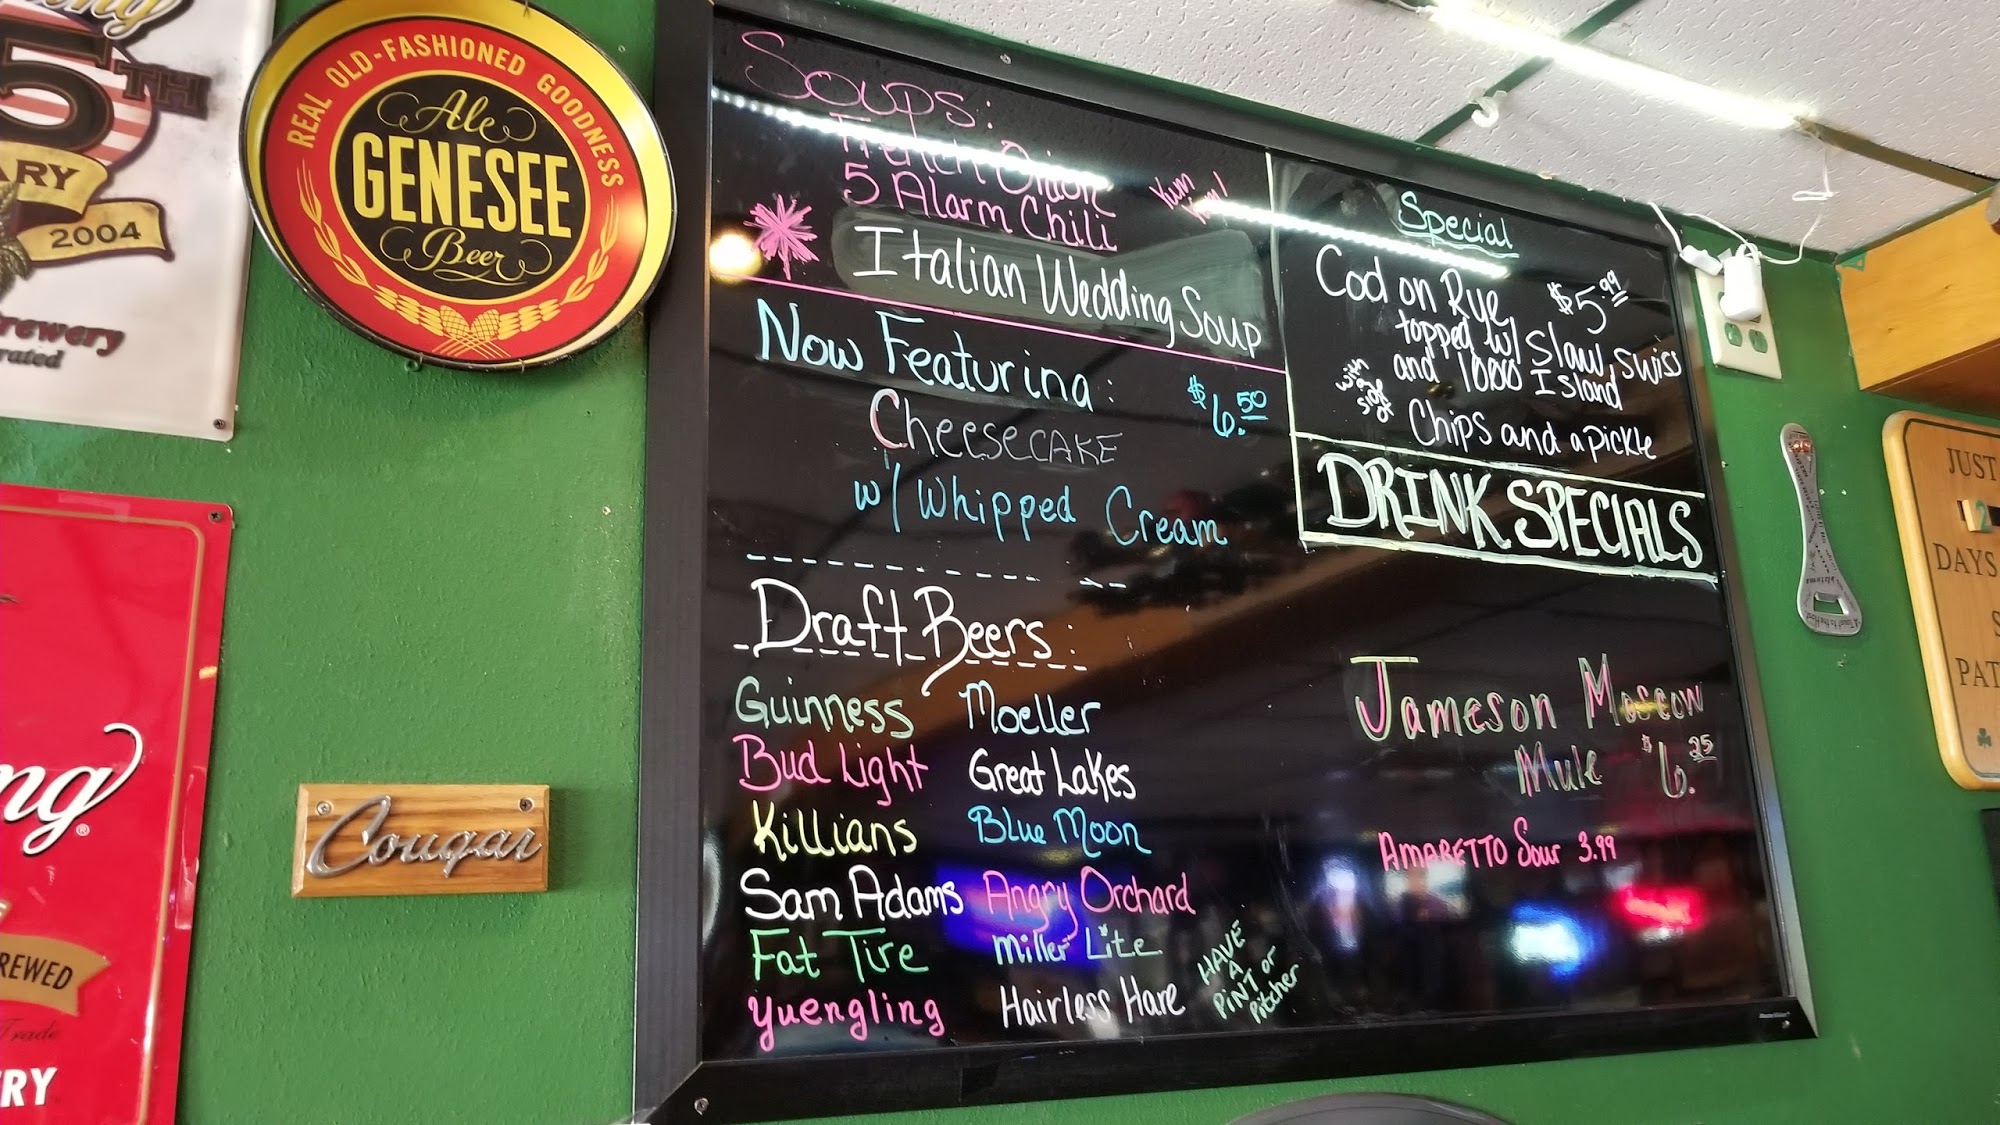 5TH
ARY
2004
rewery
rated
REAL OLD-FASHIONED GOODNESS
Ale
GENESEE
Beer
ng
®
REWED
Trade
RY
Cougar
Soups:
French Onion
5 Alarm Chili
Yum
Yum!
Italian Wedding Soup
Now Featuring:
$6.50
Cheesecake
w/ Whipped Cream
Draft Beers:
Guinness Moeller
Bud Light Great Lakes
Killians Blue Moon
Sam Adams Angry Orchard
Fat Tire Miller Lite
Yuengling Hairless Hare
HAVE
A
PINT or
Pitcher
Special
Cod on Rye $5.99
topped w/ Slaw, Swiss
and 1000 Island
with
a
side
of
Chips and a pickle
DRINK SPECIALS
Jameson Moscow
Mule $6.25
AMARETTO Sour 3.99
JUST
2
DAYS
S
PAT